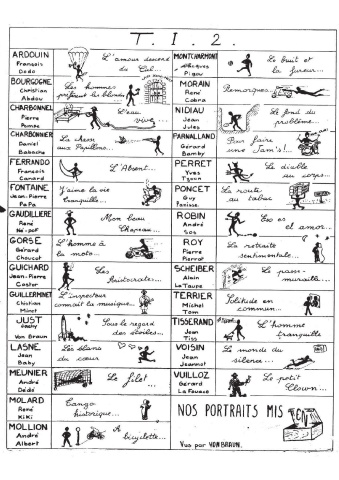 T I 2.
ARDOUIN
François
Dodo
L'amour descend
du Ciel...
BOURGOGNE
Christian
Abdou
Les hommes
préfèrent les blondes...
CHARBONNEL
Pierre
L'eau
vive...
CHARBONNIER
Daniel
Babache
La chasse
aux Papillons...
FERRANDO
François
Canard
L'Absent...
FONTAINE
Jean-Pierre
PaPa
J'aime la vie
tranquille...
GAUDILLIERE
René
Mon beau
Chapeau...
GORSE
Gérard
Choucot
L'homme à
la moto...
GUICHARD
Jean-Pierre
Castor
Les
Aristocrates...
GUILLERMINET
Christian
Minet
L'inspecteur
connait la musique...
JUST
Jacky
Von Braun
Sous le regard
des étoiles...
LASNE
Jean
Baby
Les blancs
du cœur
MEUNIER
André
Dédé
Le filet...
MOLARD
René
KiKi
Tango
historique...
MOLLION
André
Albert
A
bicyclette...
MONTCHARMONT
Jacques
Pigou
Le bruit et
la fureur...
MORAIN
René
Cobra
Remorques...
NIDIAU
Jean
Jules
Le fond du
problème...
PARNALLAND
Gérard
Bamby
Pour faire
une Jam's!...
PERRET
Yves
Le diable
au corps...
PONCET
Guy
Panisse
La route
au tabac
ROBIN
André
Sos
Eros et
amor...
ROY
Pierre
Pierrot
La retraite
sentimentale...
SCHEIBER
Alain
La Taupe
Le passe-
muraille...
TERRIER
Michel
Tom
Solitude en
commun...
TISSERAND
Jean
Tiss
L'homme
tranquille
VOISIN
Jean
Jeannot
Le monde du
silence...
VUILLOZ
Gérard
La Fouace
Le petit
Clown...
NOS PORTRAITS MIS
EN
Vus par VON BRAUN.